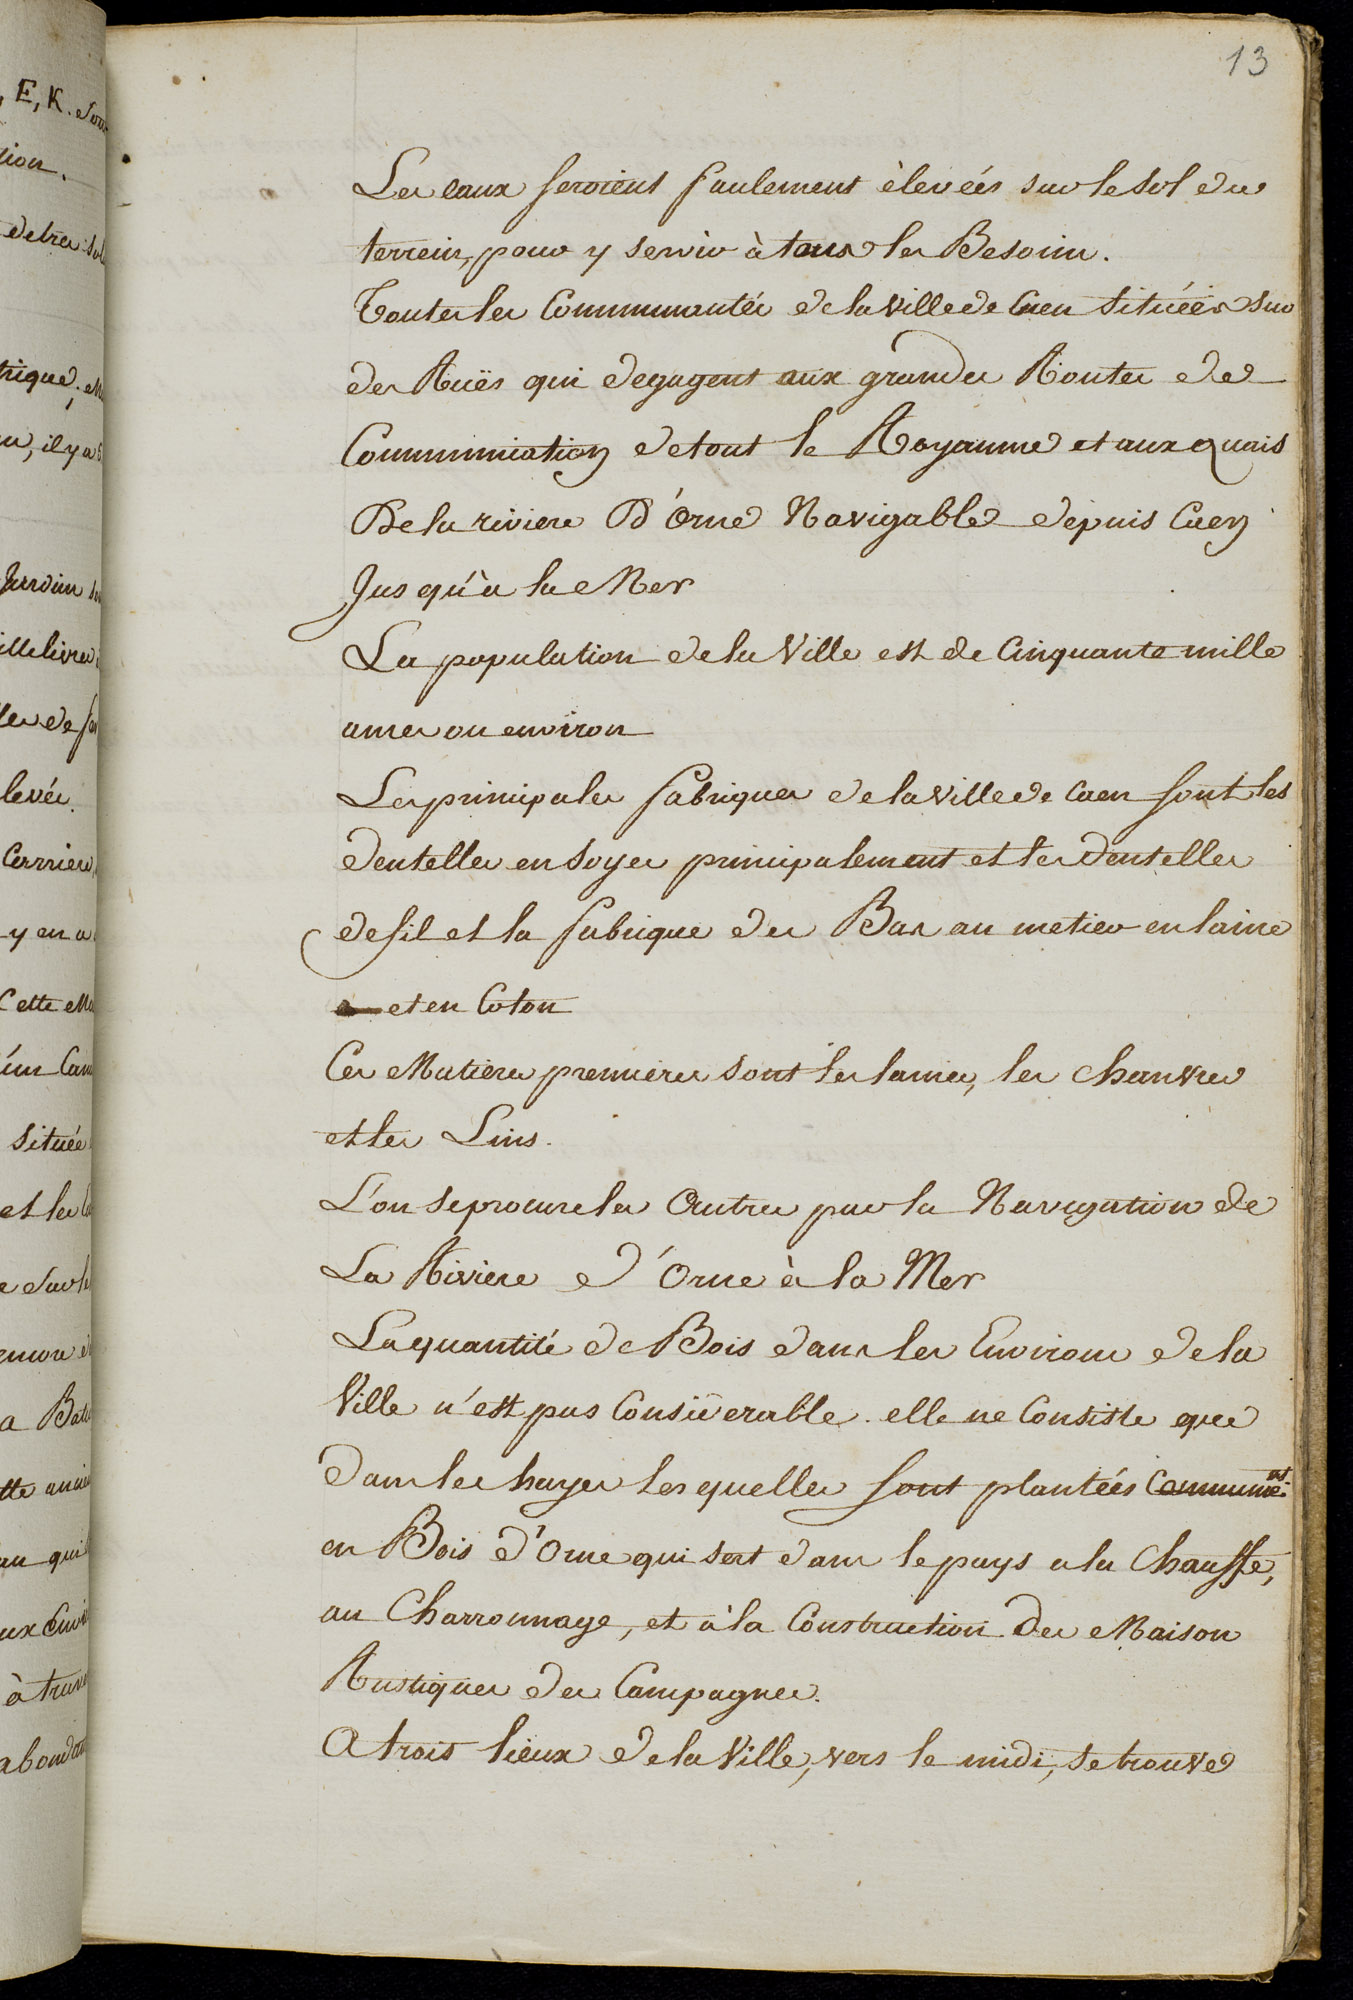 13
Les eaux seroient seulement èlevées sur le sol du
terrein, pour y servir à tous les Besoins.
Toutes les Communautés de la Ville de Caen situées sur
des Ruës qui degagent aux grandes Routes de
Communication de tout le Royaume et aux quais
De la riviere D'Orne Navigable depuis Caen
Jusqu'à la Mer
La population de la Ville est de Cinquante mille
ames ou environ
Les principales fabriques de la Ville de Caen sont les
dentelles en soyes principalement et les dentelles
de fil et la fabrique des Bas au metier en laine
et en Coton
Ces Matieres premieres sont les laines, les chanvres
et les Lins.
L'on se procure les Autres par la Navigation de
La Riviere d'Orne à la Mer
La quantité de Bois dans les Environs de la
Ville n'est pas Considerable. elle ne Consiste que
dans les hayes lesquelles sont plantées Communemt.
en Bois d'Orme qui sert dans le pays a la Chauffe,
au Charronnage, et à la Construction des Maisons
Rustiques des Campagnes.
A trois lieux de la Ville, vers le midi, se trouve
E, K. sous
tion.
située
et les
levés
y en a
Cette
à